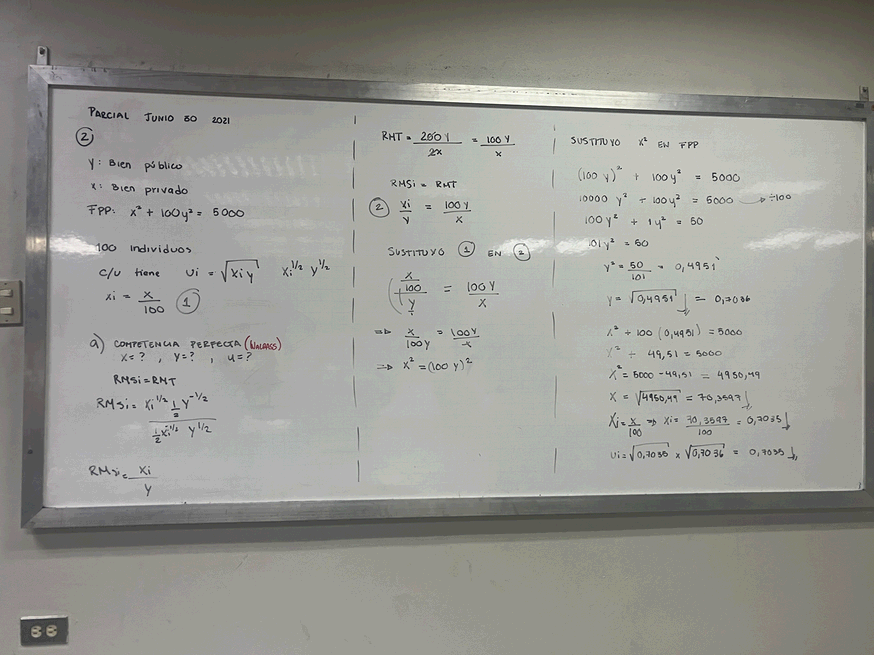 PARCIAL JUNIO 30 2021
②
Y: Bien público
X: Bien privado
FPP: X² + 100y² = 5000
100 individuos
c/u tiene Ui = √Xi Y Xi^1/2 Y^1/2
xi = X/100 ①
a) COMPETENCIA PERFECTA (WALRAS)
X=? , Y=? , U=?
RMSi = RMT
RMSi = Xi^1/2 1/2 Y^-1/2 / 1/2 Xi^-1/2 Y^1/2
RMSi = Xi / Y
RMT = 200Y / 2X = 100Y / X
RMSi = RMT
② Xi / Y = 100Y / X
SUSTITUYO ① EN ②
(X/100) / Y = 100Y / X
⇒ X / 100Y = 100Y / X
⇒ X² = (100 Y)²
SUSTITUYO X² EN FPP
(100 y)² + 100y² = 5000
10000 y² + 100y² = 5000 → ÷100
100y² + 1y² = 50
101y² = 50
y² = 50/101 = 0,4951
y = √0,4951 = 0,7036
X² + 100 (0,4951) = 5000
X² + 49,51 = 5000
X² = 5000 - 49,51 = 4950,49
X = √4950,49 = 70,3597
Xi = X/100 ⇒ Xi = 70,3597/100 = 0,7035
Ui = √0,7035 x √0,7036 = 0,7035